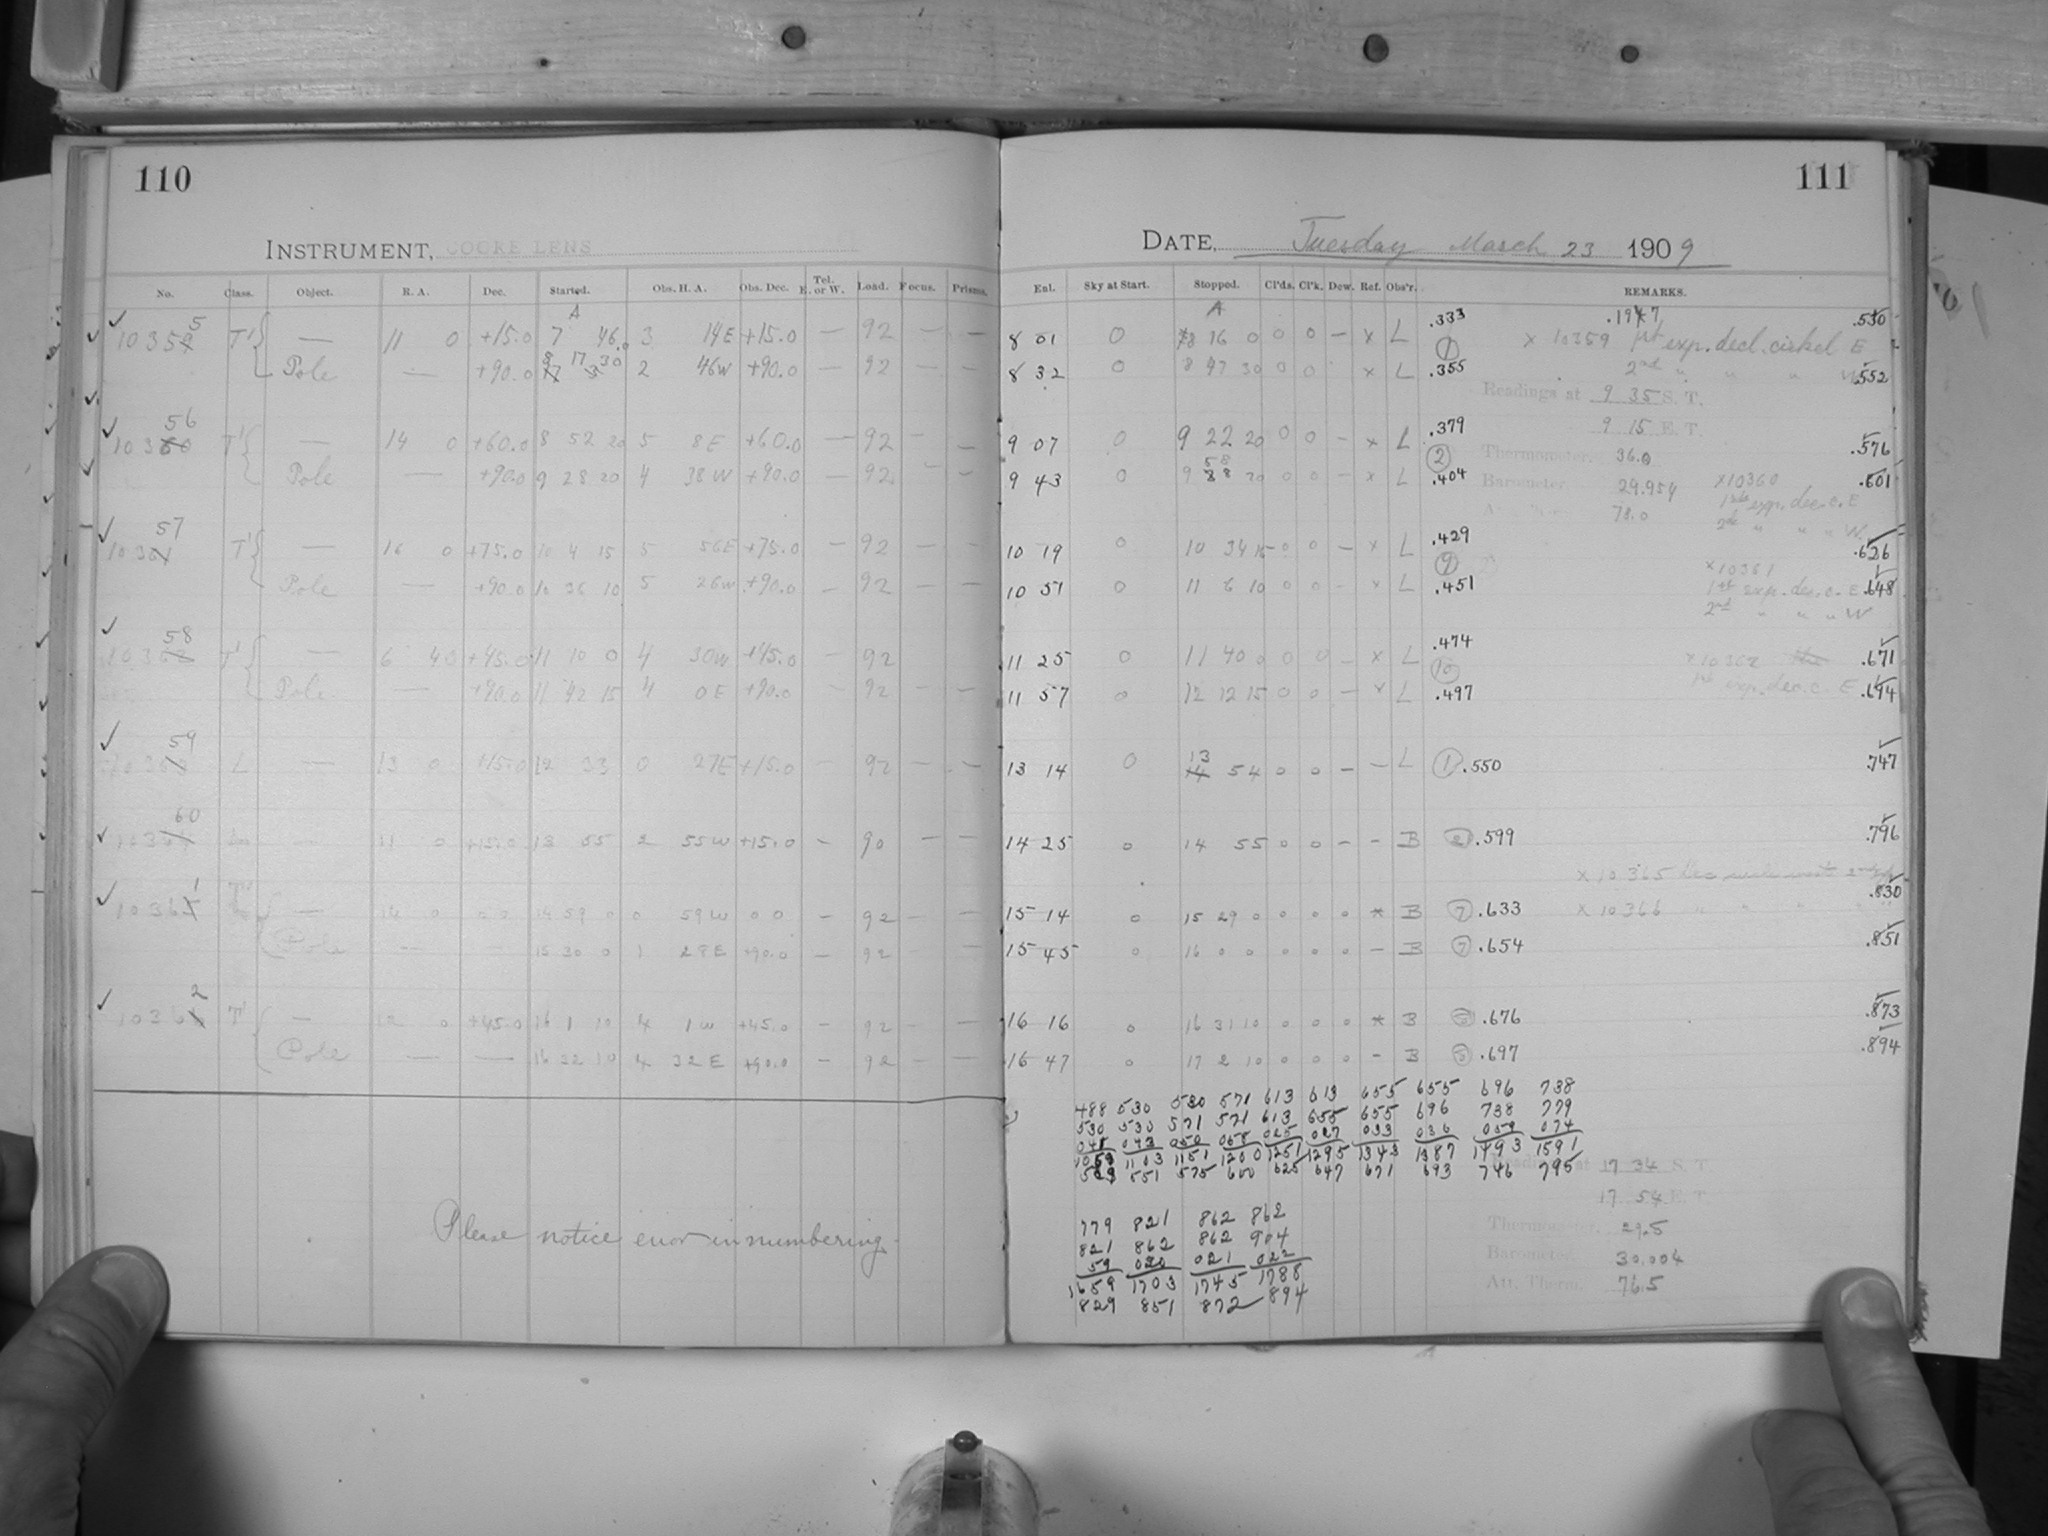 110
INSTRUMENT, COOKE LENS
No. Class. Object. R. A. Dec. Started. Obs. H. A. Obs. Dec. Tel. E. or W. Load. Focus. Prisms.
A
5
1035 T' — 11 0 +15.0 7 46.0 3 14E +15.0 — 92 — —
Pole — +90.0 8 17 30 2 46W +90.0 — 92 — —
56
10360 T' — 14 0 +60.0 8 52 20 5 8E +60.0 — 92 — —
Pole — +90.0 9 28 20 4 38W +90.0 — 92 — —
57
10361 T' — 16 0 +75.0 10 4 15 5 56E +75.0 — 92 — —
Pole — +90.0 10 36 10 5 26W +90.0 — 92 — —
58
10362 T' — 6 40 +45.0 11 10 0 4 30W +45.0 — 92 — —
Pole — +90.0 11 42 15 4 0E +90.0 — 92 — —
59
10363 L — 13 0 +15.0 12 33 0 27E +15.0 — 92 — —
60
10364 — 11 0 +15.0 13 55 2 55W +15.0 — 90 — —
1
10365 T' — 14 0 0 0 14 59 0 0 59W 0 0 — 92 — —
Pole — — 15 30 0 1 28E +90.0 — 92 — —
2
1036 T' — 12 0 +45.0 16 1 10 4 1W +45.0 — 92 — —
Pole — — 16 32 10 4 32E +90.0 — 92 — —
Please notice error in numbering.
111
DATE, Tuesday March 23 1909
Enl. Sky at Start. Stopped. Cl'ds. Cl'k. Dew. Ref. Obs'r. REMARKS.
A .333 .1947 .530
8 01 0 8 16 0 0 0 — x L 1 x 10359 1st exp. decl. cirkel E
8 32 0 8 47 30 0 0 x L .355 2nd " " " W .552
Readings at 9 35 S. T.
.379 9 15 E. T.
9 07 0 9 22 20 0 0 — x L 2 Thermometer, 36.0 .576
9 43 0 9 58 20 0 0 — x L .404 Barometer, 29.954 x10360 .601
1st exp. dec. c. E
78.0 2nd " " " W
.429
10 19 0 10 34 15 0 0 — x L .626
x10361
10 51 0 11 6 10 0 0 — x L .451 1st exp. dec. c. E .648
2nd " " " W
.474
11 25 0 11 40 0 0 0 — x L 10 x10362 .671
11 57 0 12 12 15 0 0 — x L .497 1st exp. dec. c. E .694
13 14 0 13 54 0 0 — — L 1 .550 .747
14 25 0 14 55 0 0 — — B 2 .599 .796
x 10365 .830
15 14 0 15 29 0 0 0 0 x B 7 .633 x 10366 " " " "
15 45 0 16 0 0 0 0 0 — B 7 .654 .851
16 16 0 16 31 10 0 0 0 x B .676 .873
16 47 0 17 2 10 0 0 0 — B .697 .894
488 530 530 571 613 613 655 655 696 738
530 530 571 571 613 655 655 696 738 779
041 043 050 058 025 027 033 036 059 074
1059 1103 1151 1200 1251 1295 1343 1387 1493 1591
529 551 575 600 625 647 671 693 746 795
Readings at 17 34 S. T.
17 54 E. T.
779 821 862 862
821 862 862 904
59 020 021 022
1659 1703 1745 1788
829 851 872 894
Thermometer, 29.5
Barometer, 30.004
Att. Therm. 76.5